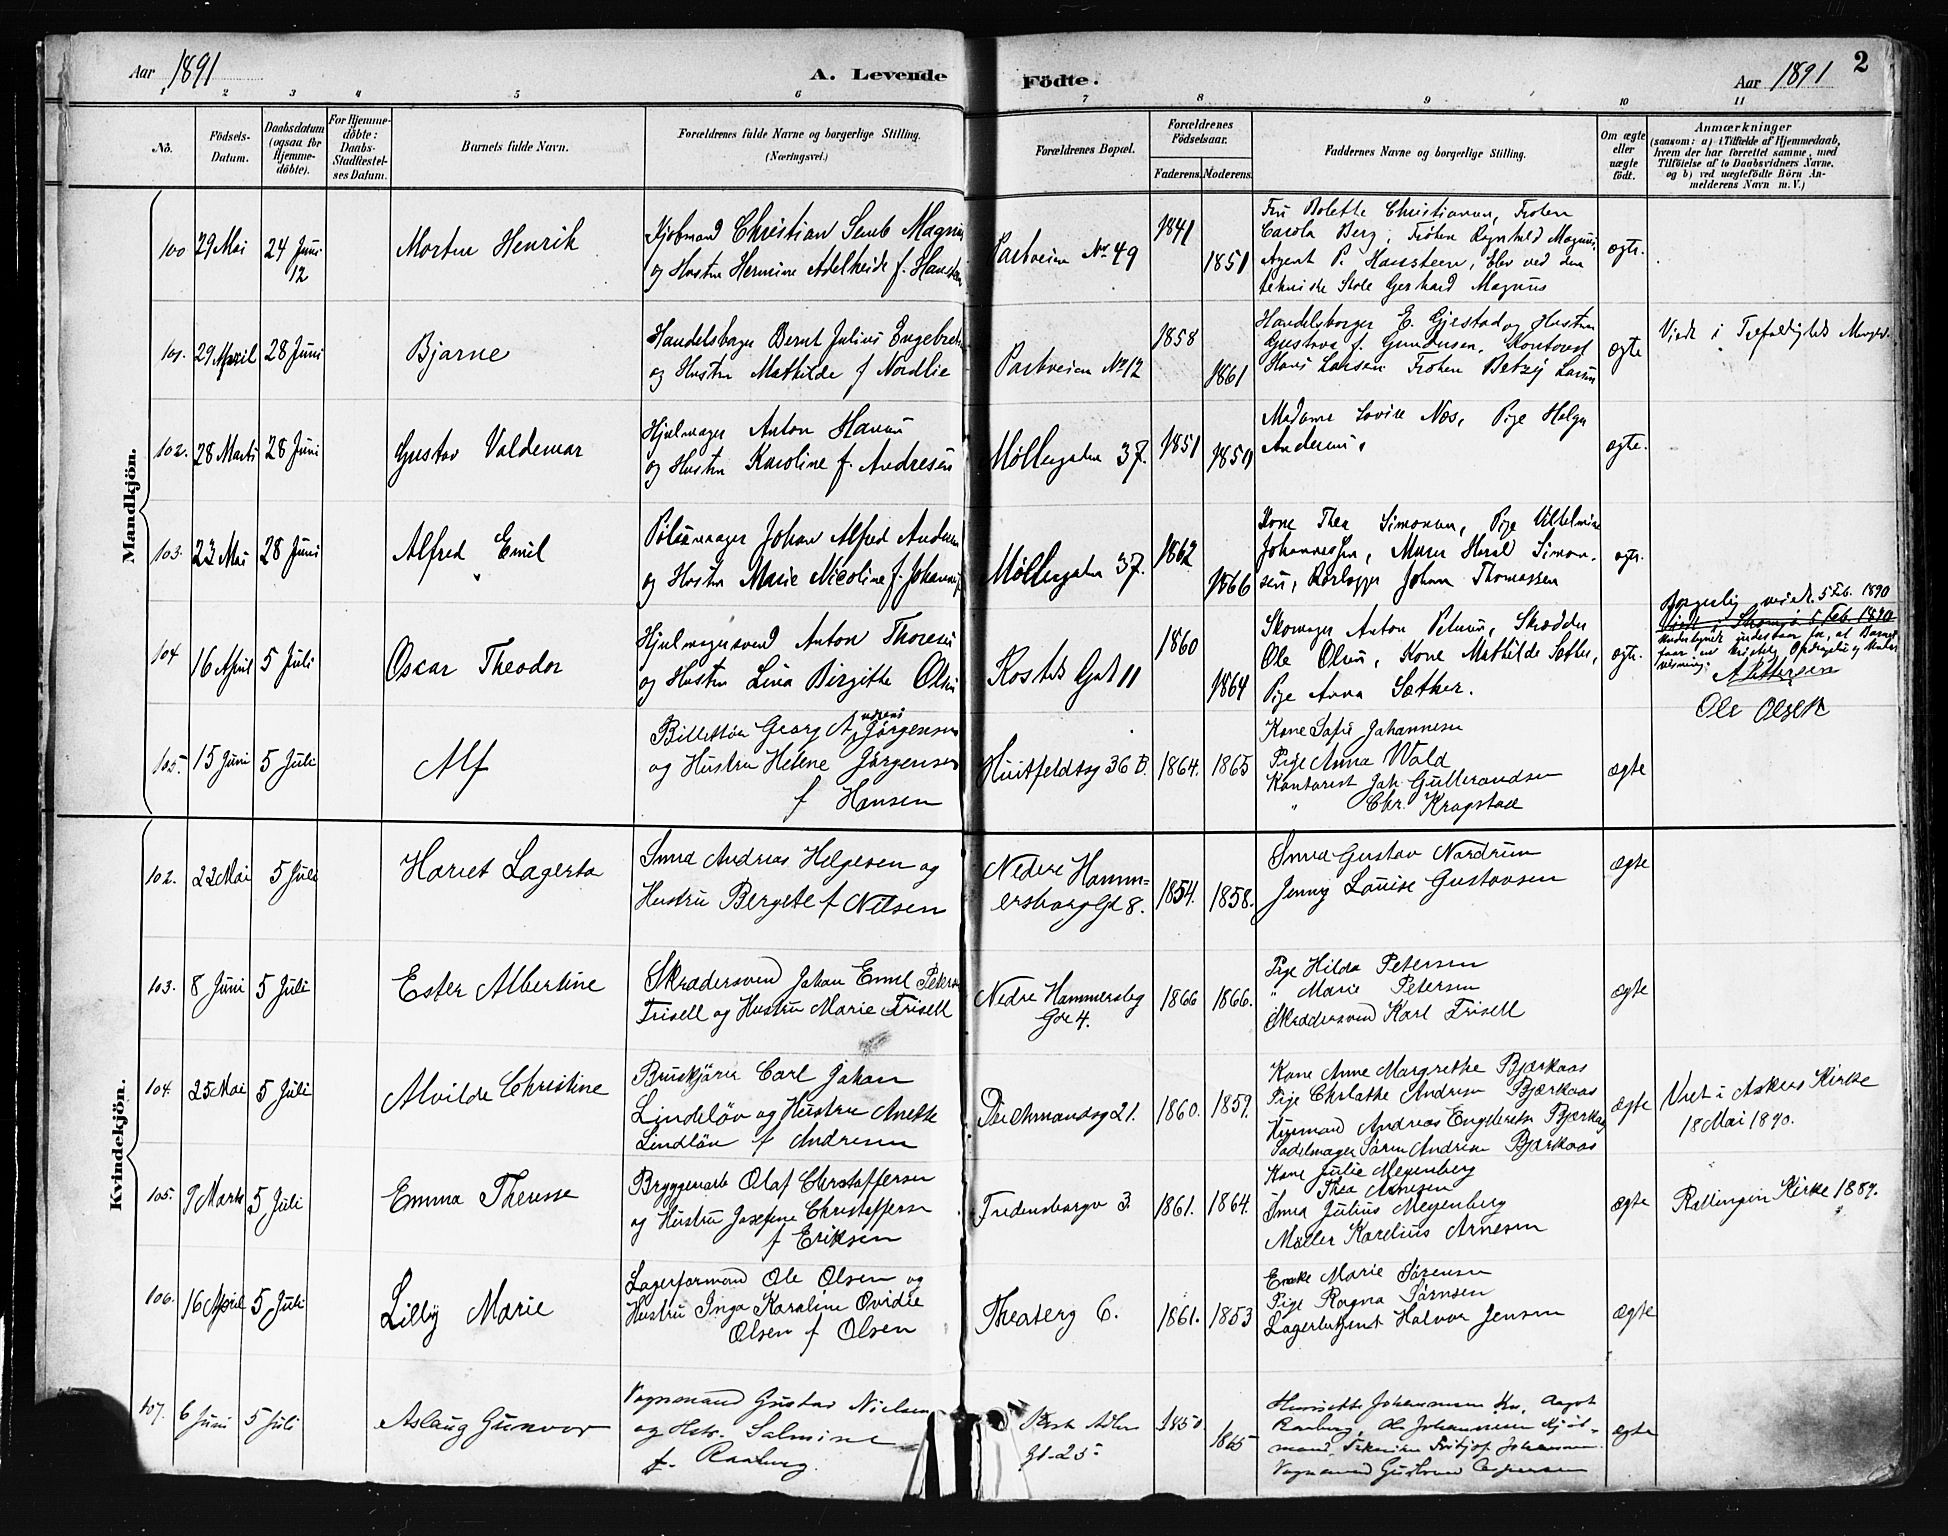 Aar 1891 A. Levende Födte. Aar 1891 2
1 2 3 4 5 6 7 8 9 10 11
No. Födsels-Datum. Daabsdatum (ogsaa for Hjemme-døbte). For Hjemme-døbte: Daabs-Stadfæstel-ses Datum. Barnets fulde Navn. Forældrenes fulde Navne og borgerlige Stilling. (Næringsvei.) Forældrenes Bopæl. Forældrenes Födselsaar. Faderens. Moderens. Faddernes Navne og borgerlige Stilling. Om ægte eller uægte födt. Anmærkninger
(saasom: a) i Tilfælde af Hjemmedaab,
hvem der har forrettet samme, med
Tilföielse af to Daabsvidners Navne,
og b) ved uægtefödte Börn An-
melderens Navn m. V.)
Mandkjön.
100 29 Mai 24 Juni 12 Morten Henrik
Kjøbmand Christian Semb Magnus
og Hustru Hermine Adelheide f. Hansteen
Parkveien No 49 1841 1851
Fru Bolette Christiansen, Frøken
Carola Berg, Frøken Ragnhild Magnus,
Agent P. Hansteen, Elev ved den
tekniske Skole Gerhard Magnus
ægte.
101. 29 April 28 Juni Bjarne
Handelsborger Bernt Julius Engebretsen
og Hustru Mathilde f Nordlie
Parkveien No 12 1858 1861
Handelsborger E. Gjestad og Hustru
Gustava f. Gundersen, Kontorist
Hans Larsen Frøken Betzy Larsen
ægte
Viede i Trefoldigheds Menighed.
102. 28 Marts 28 Juni Gustav Valdemar
Hjulmager Anton Hansen
og Hustru Karoline f. Andresen
Møllergaden 37. 1851 1850
Madame Lovise Næs, Pige Helga
Andersen.
ægte.
103. 23 Mai 28 Juni Alfred Emil
Pølsemager Johan Alfred Andersen
og Hustru Marie Nicoline f. Johannes
Møllergaden 37. 1862 1866
Kone Thea Simonsen, Pige Vilhelmine
Johannessen, Murer Harald Simon-
sen, Rørlægger Johan Thomassen
ægte.
104 16 April 5 Juli Oscar Theodor
Hjulmagersvend Anton Thoresen
og Hustru Lina Birgitte Olsen
Rosteds Gad 11 1860 1864
Skomager Anton Petersen, Skrædder
Ole Olsen, Kone Mathilde Sæther,
Pige Anna Sæther.
ægte.
Borgerlig viede 5 Feb. 1890
5 Feb. 1890
A Pettersen
Ole Olsen
105. 15 Juni 5 Juli Alf
Billettør Georg Andreas Jørgensen
og Hustru Helene Jørgensen
f Hansen
Huitfeldtsg 36 B. 1864. 1865
Kone Sofie Johannesen
Pige Anna Wold
Kontorist Joh. Gulbrandsen
" Chr. Krogstad
ægte
Kvindekjön.
102. 22 Mai 5 Juli Hariet Lagerta
Smed Andreas Helgesen og
Hustru Bergete f Nilsen
Nedre Hamm=
ersborg Gd 8. 1854. 1858.
Smed Gustav Nordrum
Jenny Louise Gustavsen
ægte
103. 8 Juni 5 Juli Ester Albertine
Skrædersvend Johan Emil Petersen
Frisell og Hustru Marie Frisell
Nedre Hammersbg
Gde 4. 1866 1866.
Pige Hilda Petersen
" Marie Petersen
Skrædersvend Karl Frisell
ægte
104. 25 Mai 5 Juli Alvilde Christine
Bruskjører Carl Johan
Lindeløv og Hustru Anette
Lindløv f Andresen
Deichmandsg 21. 1860. 1859.
Kone Anne Margrethe Bjærkaas
Pige Andrea Bjærkaas
Andreas Bjærkaas
Sadelmager Søren Andrea Bjærkaas
ægte
Viet i Askers Kirke
18 Mai 1890.
105. 9 Marts 5 Juli Emma Therese
Bryggeriarb Olaf Christoffersen
og Hustru Josefine Christoffersen
f Eriksen
Fredensborgv 3. 1861. 1864.
Kone Julie Meyenberg
Thea Arnesen
Smed Julius Meyenberg
Møller Karelius Arnesen
ægte
Rællingen Kirke 1889.
106. 16 April 5 Juli Lilly Marie
Lagerformand Ole Olsen og
Hustru Inga Karoline Ovidie
Olsen f Olsen
Theaterg 6. 1861. 1853
Enke Marie Sørensen
Pige Ragna Sørnsen
Lagerbetjent Halvor Jensen
ægte
107. 6 Juni 5 Juli Aslaug Gunvor
Vognmand Gustav Nielsen
og Hstr. Salmine
f. Raaberg.
Kort Adlers
Gd. 25 1850 1865
Henriette Johannessen Aagot
Raaberg, Ole Johannessen Kjøb-
mand Tekniker Fritjof Johannessen
Vognmand
ægte